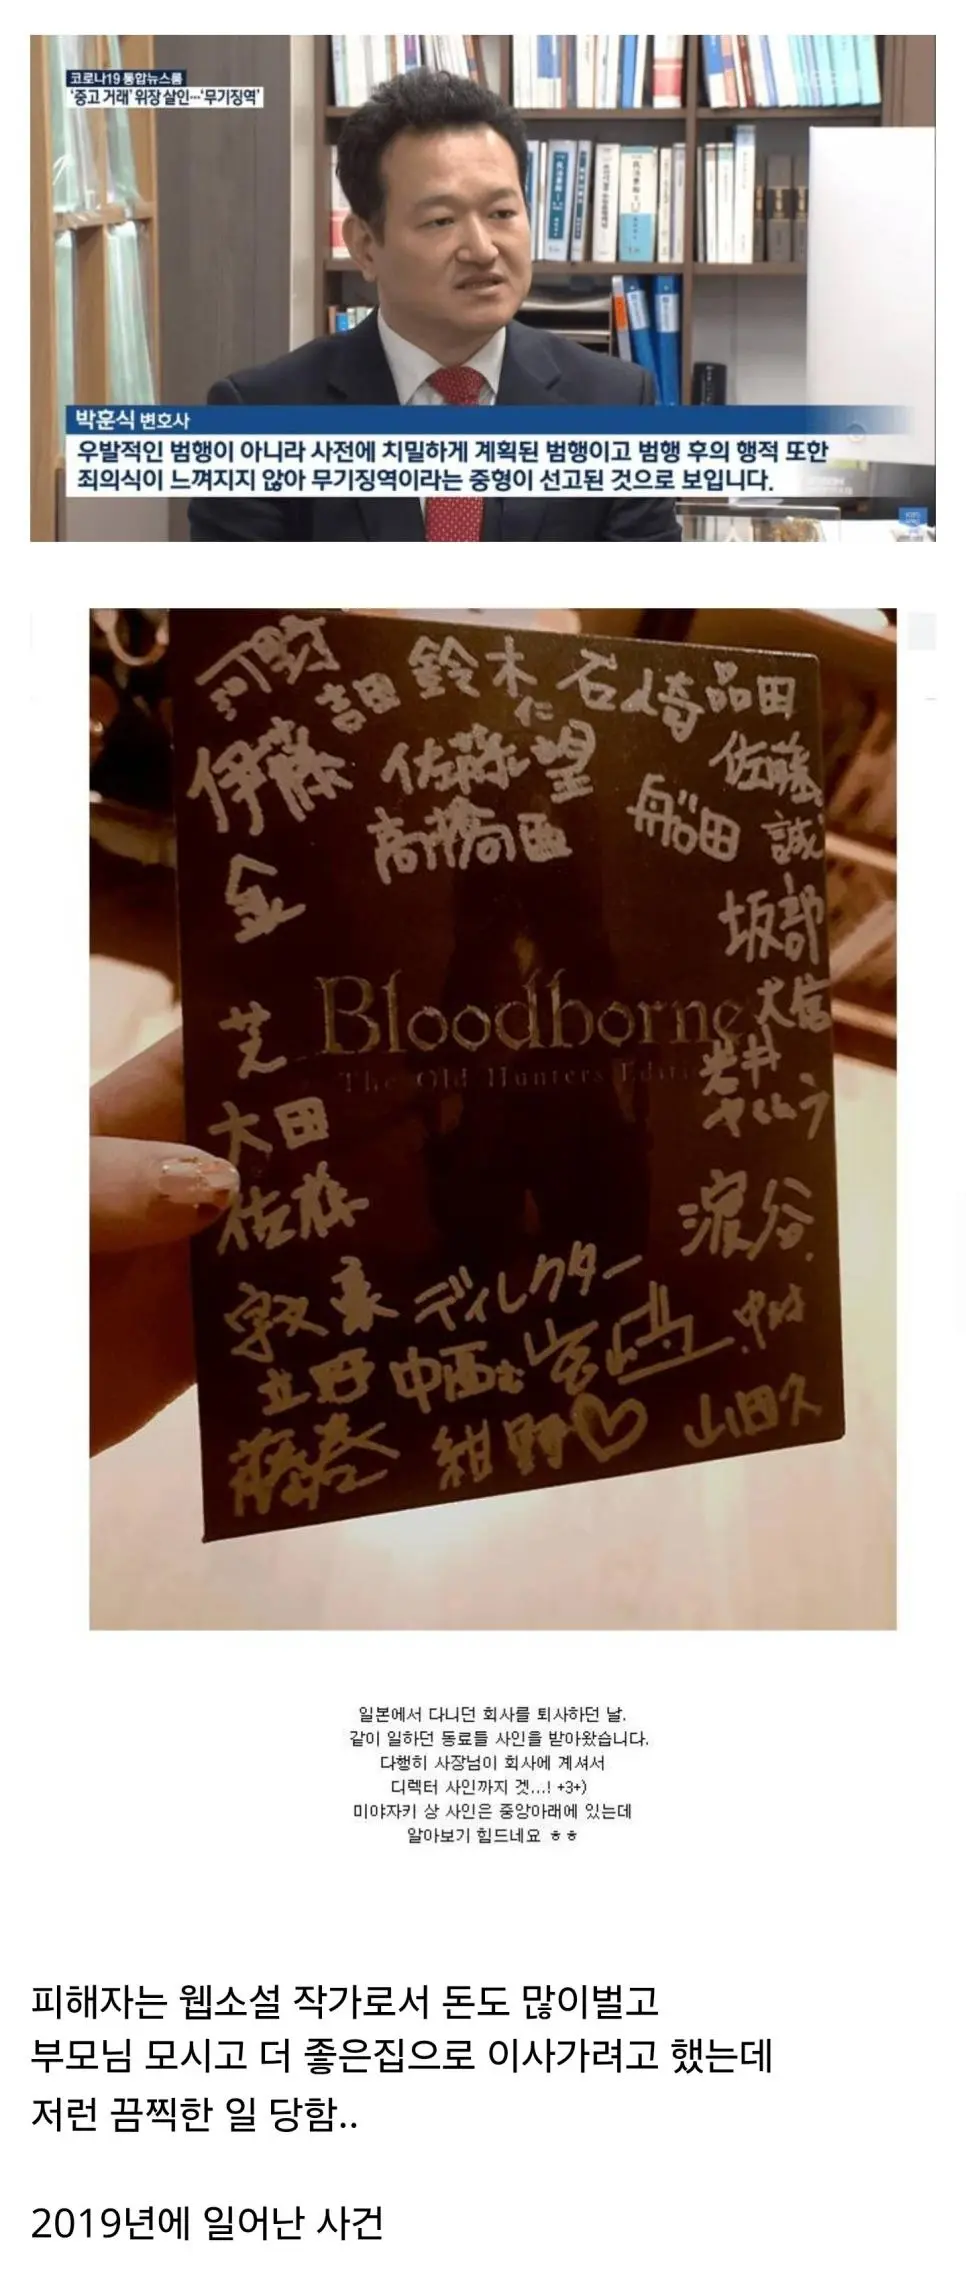 코로나19 통합뉴스룸
'중고 거래' 위장 살인…'무기징역'
박훈식 변호사
우발적인 범행이 아니라 사전에 치밀하게 계획된 범행이고 범행 후의 행적 또한
죄의식이 느껴지지 않아 무기징역이라는 중형이 선고된 것으로 보입니다.
河野
吉田
鈴木
石崎
品田
仁
伊藤
佐藤 望
佐藤
高橋
船田
誠
金
坂部
Bloodborne
大信
芝
The Old Hunters Edition
岩井
大田
佐族
澱谷
敦彦
ディレクター
立野
中西
宮崎
中村
藤巻
紺野♡
山田久
일본에서 다니던 회사를 퇴사하던 날.
같이 일하던 동료들 사인을 받아왔습니다.
다행히 사장님이 회사에 계셔서
디렉터 사인까지 겟...! +3+)
미야자키 상 사인은 중앙아래에 있는데
알아보기 힘드네요 ㅎㅎ
피해자는 웹소설 작가로서 돈도 많이벌고
부모님 모시고 더 좋은집으로 이사가려고 했는데
저런 끔찍한 일 당함..
2019년에 일어난 사건